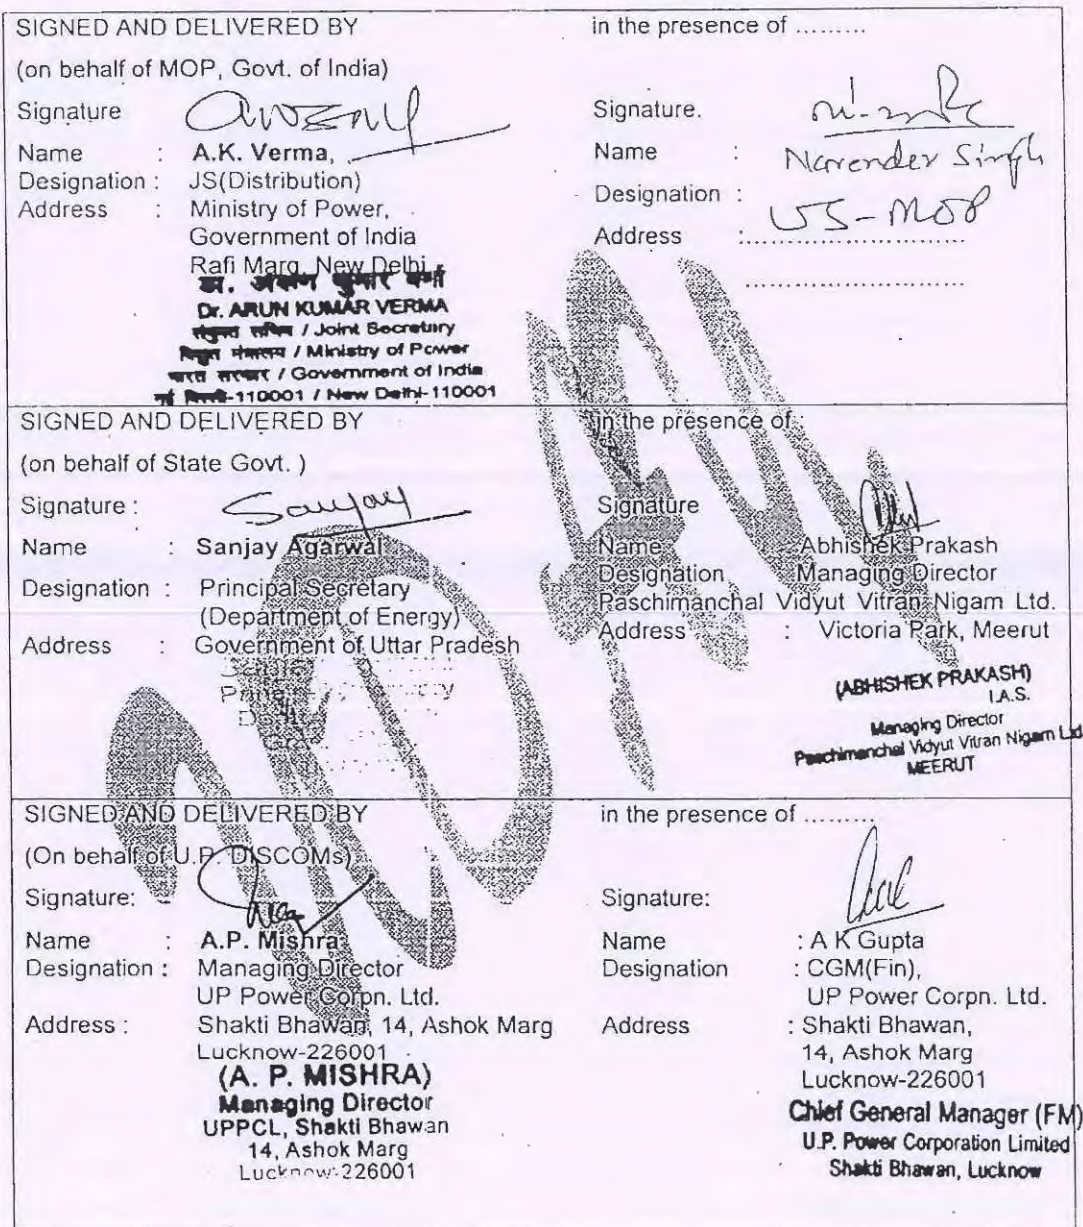 SIGNED AND DELIVERED BY
(on behalf of MOP, Govt. of India)
Signature
Name : A.K. Verma,
Designation : JS(Distribution)
Address : Ministry of Power,
Government of India
Rafi Marg, New Delhi
डा. अरूण कुमार वर्मा
Dr. ARUN KUMAR VERMA
संयुक्त सचिव / Joint Secretary
विद्युत मंत्रालय / Ministry of Power
भारत सरकार / Government of India
नई दिल्ली-110001 / New Delhi-110001
in the presence of .........
Signature.
Name : Narender Singh
Designation : US-MOP
Address :
SIGNED AND DELIVERED BY
(on behalf of State Govt. )
Signature : Sanjay
Name : Sanjay Agarwal
Designation : Principal Secretary
(Department of Energy)
Address : Government of Uttar Pradesh
in the presence of :
Signature
Name Abhishek Prakash
Designation Managing Director
Paschimanchal Vidyut Vitran Nigam Ltd.
Address : Victoria Park, Meerut
(ABHISHEK PRAKASH)
I.A.S.
Managing Director
Paschimanchal Vidyut Vitran Nigam Ltd
MEERUT
SIGNED AND DELIVERED BY
(On behalf of U.P. DISCOMs)
Signature:
Name : A.P. Mishra
Designation : Managing Director
UP Power Corpn. Ltd.
Address : Shakti Bhawan, 14, Ashok Marg
Lucknow-226001
(A. P. MISHRA)
Managing Director
UPPCL, Shakti Bhawan
14, Ashok Marg
Lucknow-226001
in the presence of .........
Signature:
Name : A K Gupta
Designation : CGM(Fin),
UP Power Corpn. Ltd.
Address : Shakti Bhawan,
14, Ashok Marg
Lucknow-226001
Chief General Manager (FM)
U.P. Power Corporation Limited
Shakti Bhawan, Lucknow